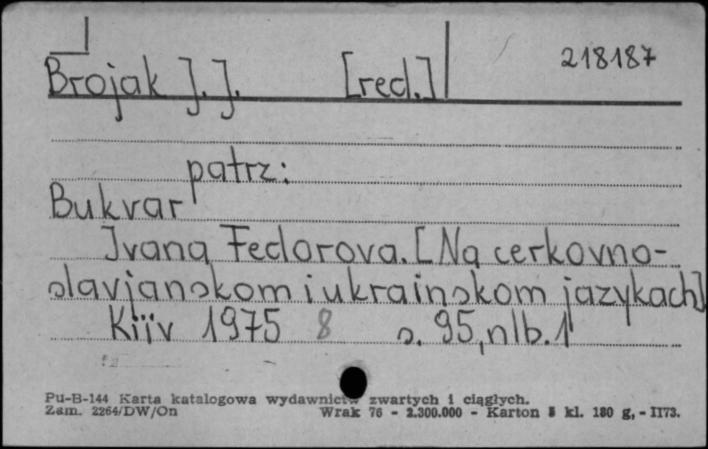 218187
Brojak J. J. [red.]
patrz:
Bukvar
Ivana Fedorova. [Na cerkovno-
slavjanskom i ukrainskom jazykach]
Kiïv 1975 8 s. 95, nlb. 1
Pu-B-144 Karta katalogowa wydawnictw zwartych i ciągłych.
Zam. 2264/DW/On Wrak 76 - 2.300.000 - Karton kl. 180 g, - II73.